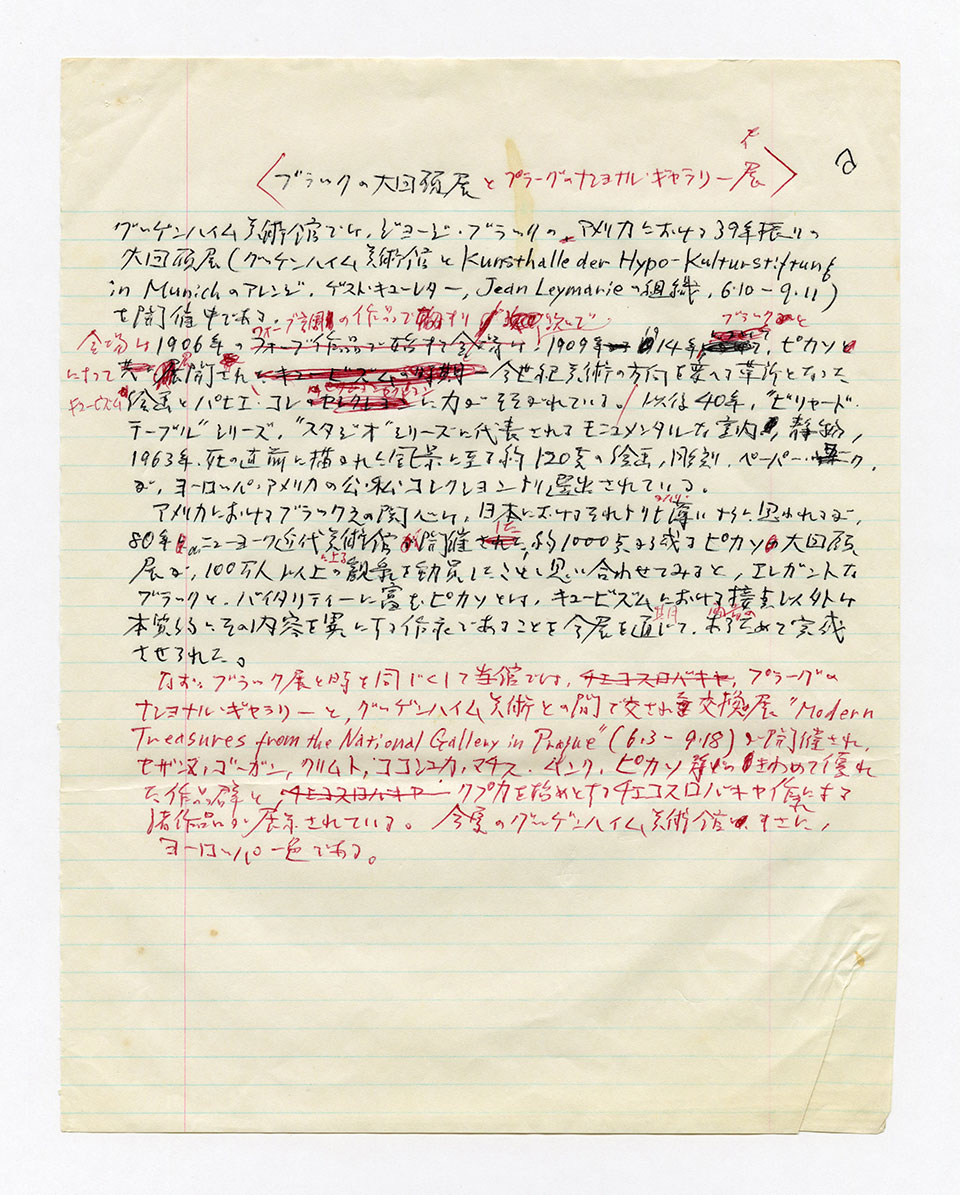 〈ブラックの大回顧展とプラーグのナショナル・ギャラリー展〉
グッゲンハイム美術館では、ジョージ・ブラックの、アメリカにおける39年振りの
大回顧展(グッゲンハイム美術館とKunsthalle der Hypo-Kulturstiftung
in Munichのアレンジ、ゲスト・キューレター, Jean Leymarieの組織, 6.10-9.11)
を開催中である。
会場は1906年のフォーブ調の作品で 1909年 14年, ブラックと ピカソ
によって 展開された 今世紀美術の方向を変へる革新となった
キュービズム絵画とパピエ・コレの に力がそそがれている。以後40年, "ビリヤード・
テーブル"シリーズ, "スタジオ"シリーズに代表されるモニュメンタルな室内, 静物,
1963年、死の直前に描かれた風景に至る約120点の絵画, 彫刻, ペーパー・ワーク,
が, ヨーロッパ・アメリカの公・私・コレクションより選出されている。
アメリカにおけるブラックへの関心は, 日本におけるそれよりも薄いように思われるが,
80年 ニューヨーク近代美術館 開催した, 約1000点から成るピカソ大回顧
展が, 100万人以上に上る観客を動員したことを思い合わせてみると, エレガントな
ブラックと, バイタリティーに富むピカソとは, キュービズム期における両者の接点以外は
本質的にその内容を異にする作家であることを今展を通じて, あらためて完成
させられた。
なお、ブラック展と時を同じくして当館では, チェコスロバキヤ, プラーグの
ナショナル・ギャラリーと, グッゲンハイム美術との間で交された交換展 "Modern
Treasures from the National Gallery in Prague" (6.3-9.18) が開催され,
セザンヌ, ゴーガン, クリムト, ココシュカ, マチス, ムンク, ピカソ等の きわめて優れ
た作品群と, チェコスロバキヤ クプカを始めとするチェコスロバキヤ作家による
諸作品が展示されている。 今夏のグッゲンハイム美術館は、まさに,
ヨーロッパ一色である。